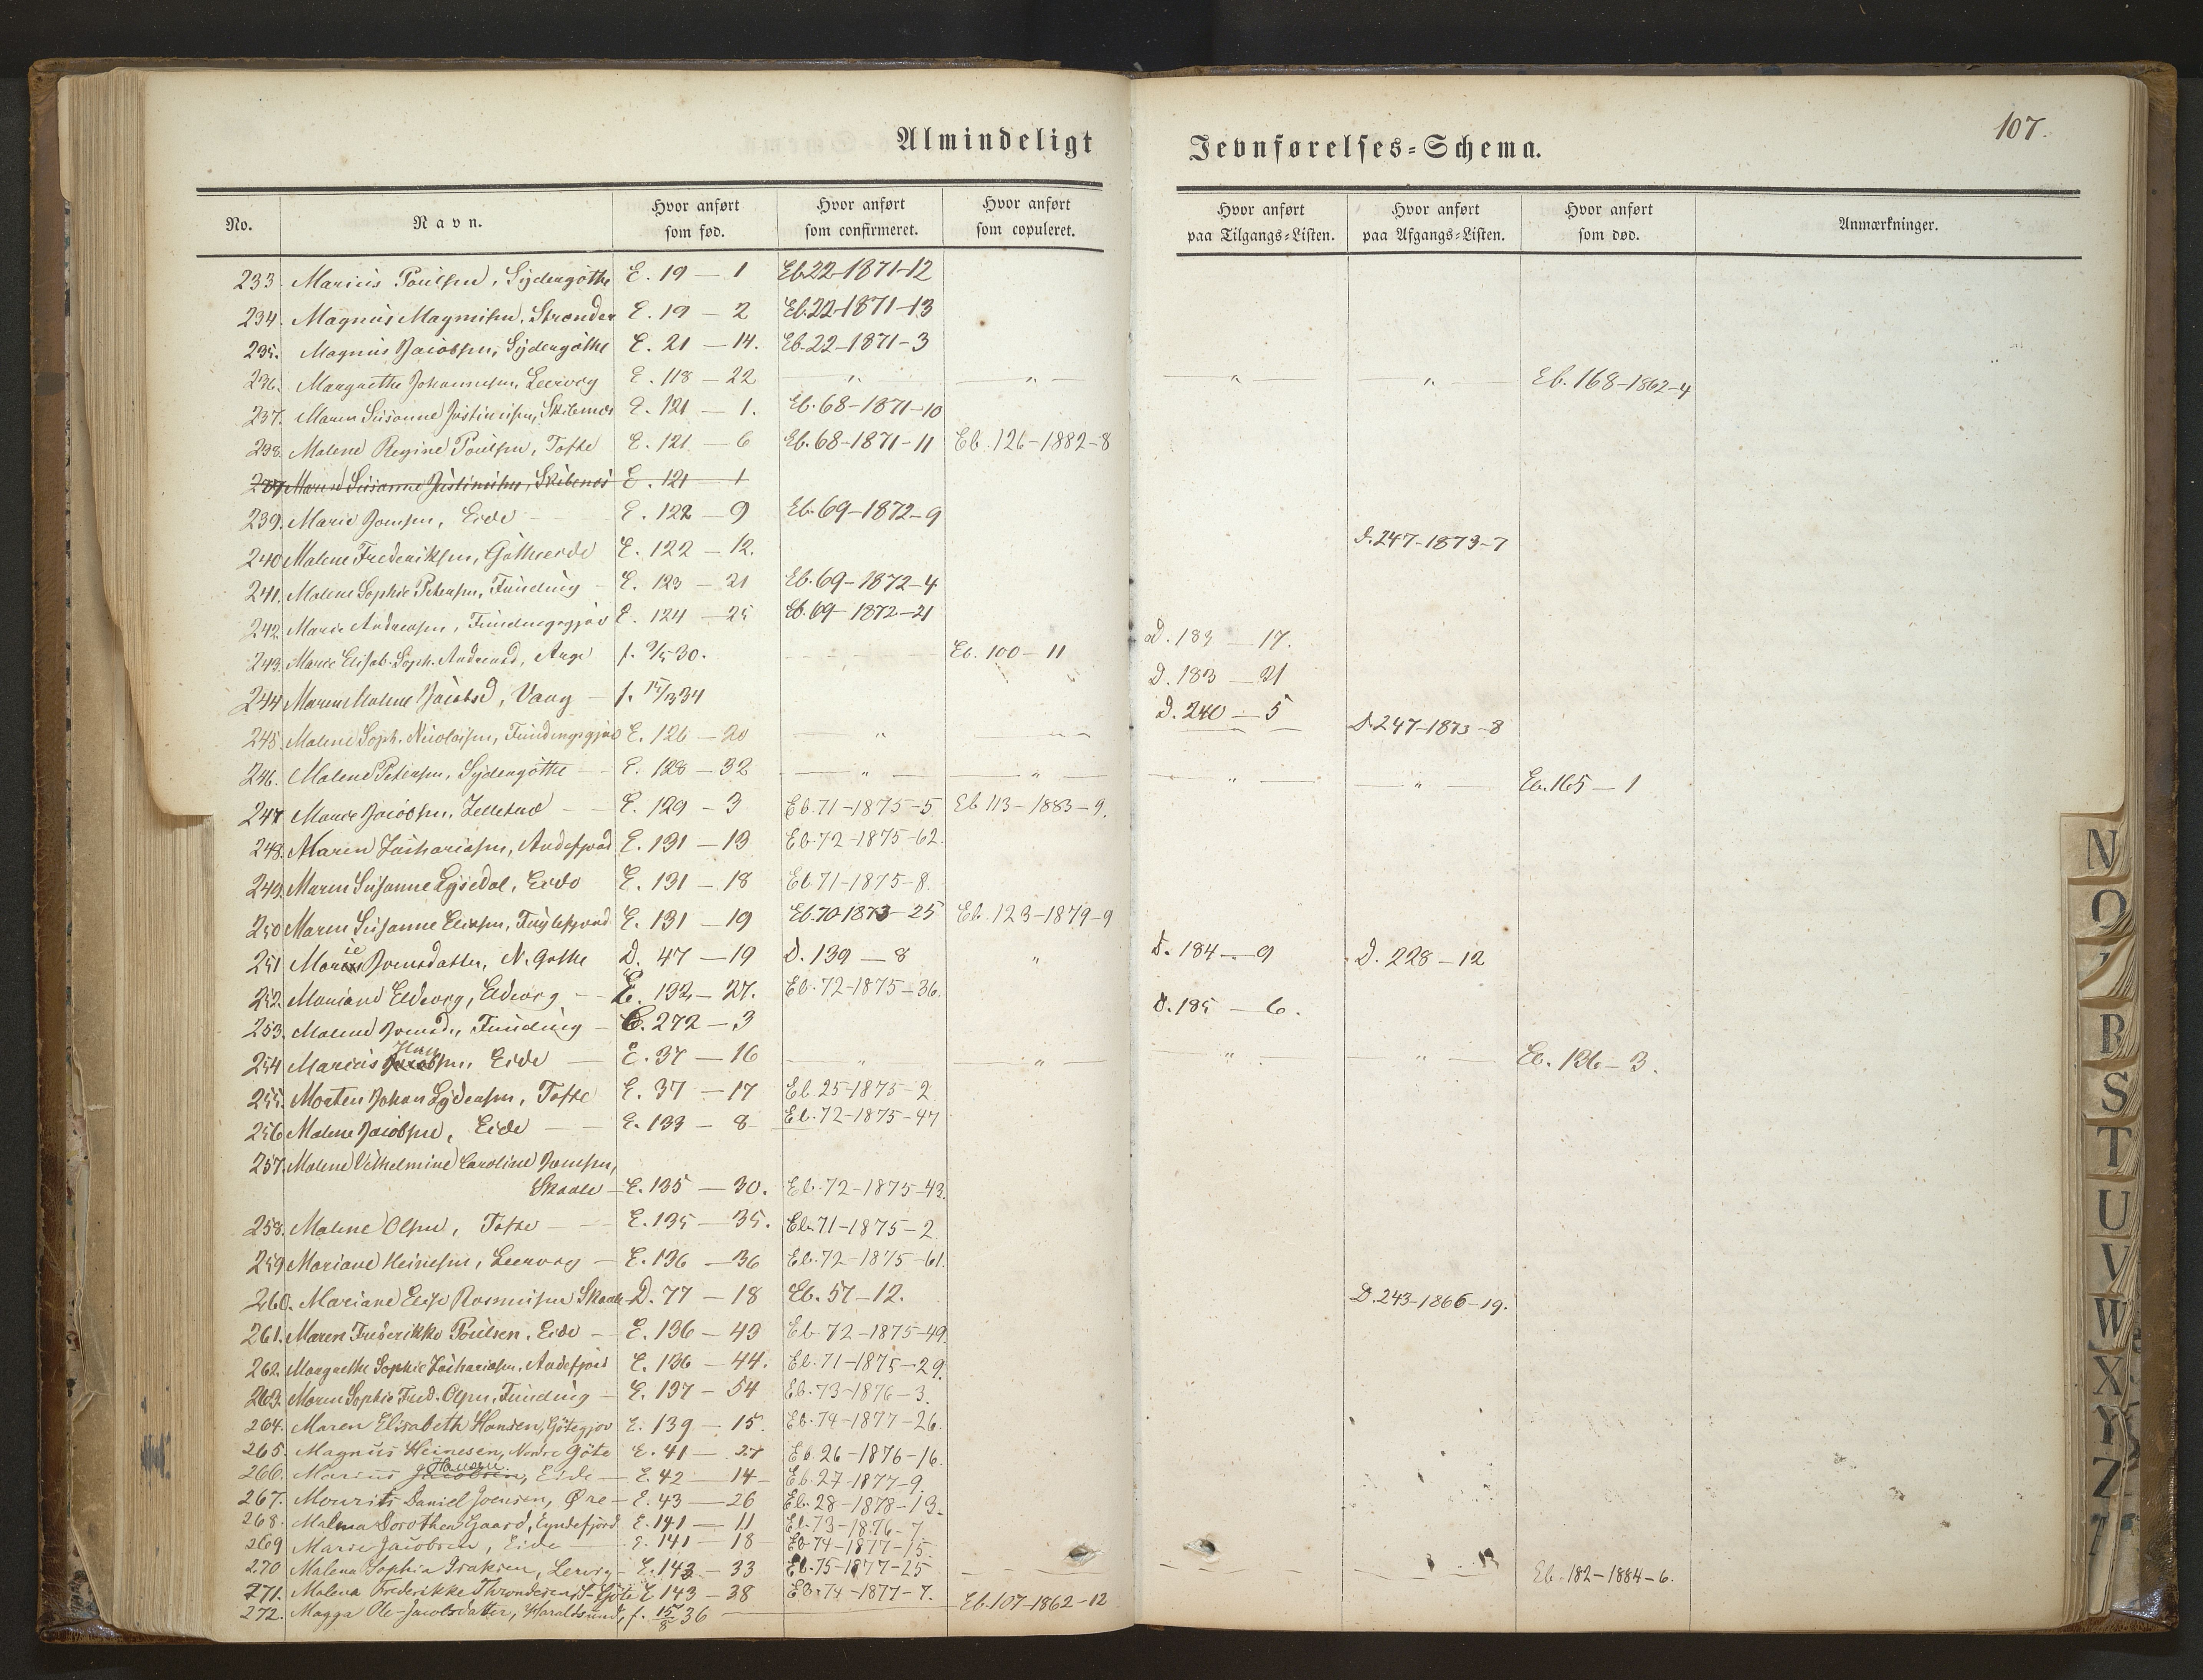 Almindeligt Jevnførelses=Schema.
107.
No. | Navn. | Hvor anført som fød. | Hvor anført som confirmeret. | Hvor anført som copuleret. | Hvor anført paa Tilgangs=Listen. | Hvor anført paa Afgangs=Listen. | Hvor anført som død. | Anmærkninger.
233. Marius Poulsen, Sydergøthe E. 19 — 1 Eb. 22-1871-12
234. Magnus Magnusen, Strender E. 19 — 2 Eb. 22-1871-13
235. Magnus Jacobsen, Sydergøthe E. 21 — 14. Eb. 22-1871-3
236. Margrethe Johannesen, Leervig E. 118 — 22 — „ — „ — — „ — — „ — Eb. 168-1862-4
237. Maren Susanne Justinisen, Skibenæs E. 121 — 1. Eb. 68-1871-10
238. Malene Regine Poulsen, Tofte E. 121 — 6 Eb. 68-1871-11 Eb. 126-1882-8
239 Maren Susanne Justinisen, Skibenæs E. 121 — 1
239. Marie Joensen, Eide E. 122 — 9 Eb. 69-1872-9
240 Malene Frederiksen, Gøtheeide E. 122 — 12. D. 247-1873-7
241. Malene Sophie Petersen, Funding E. 123 — 21 Eb. 69-1872-4
242. Marie Andreasen, Fundingsgjov E. 124 — 25 Eb. 69-1872-21
243. Marie Elisab. Soph. Andreasd, f. 9/5 30. Eb. 100 — 11 D. 183 — 17.
244 Maren Malene Jacobsd, Vaag f. 15/3 34 D. 183 — 21
245. Malene Soph. Nicolaisen, Fundingsgjov E. 126 — 20 — „ — D. 240 — 5 D. 247-1873-8
246. Malene Petersen, Sydergøthe E. 128 — 32 — „ — „ — — „ — — „ — Eb. 165 — 1
247 Jacobsen, Zelletræ E. 129 — 3 Eb. 71-1875-5. Eb 113-1883-9.
248. Maren Zachariasen, Andefjord E. 131 — 13 Eb. 72-1875-62.
249. Maren Susanne Lysedal, Eide E. 131 — 18 Eb. 71-1875-8.
250 Maren Susanne Fuglefjord E. 131 — 19 Eb. 70-1873-25 Eb. 123-1879-9
251 Marie Joensdatter, N. Gøthe D. 47 — 19 D. 139 — 8 „ D. 184 — 9 D. 228 — 12
252. Mariane Eldevig, Eldevig E. 132 — 27. Eb. 72-1875-36.
253. Malene Joensd., Funding C. 272 — 3 D. 185 — 6.
254 Marius Hansen Jacobsen, Eide E. 37 — 16 — „ — „ — — „ — — „ — Eb. 136 — 3.
255. Morten Johan Lydersen, Tofte E. 37 — 17 Eb. 25-1875-2
256 Malene Jacobsen, Eide E. 133 — 8 Eb. 72-1875-47
257. Malene Vilhelmine Caroline Joensen,
Skaale E. 135 — 30. Eb. 72-1875-43.
258. Malene Olsen, Tofte E. 135 — 35. Eb. 71-1875-2
259 Mariane Heinesen, Leervig E. 136 — 36 Eb. 72-1875-61.
260. Mariane Elise Rasmusen Skaale D. 77 — 18 Eb. 57-12. D. 243-1866-19.
261. Maren Frederikke Poulsen, Eide E. 136 — 43 Eb. 72-1875-49.
262. Margrethe Sophie Zachariasen, Andefjord E. 136 — 44. Eb. 71-1875-29.
263. Maren Sophie Fred. Olsen, Funding E. 137 — 54 Eb. 73-1876-3.
264. Maren Elisabeth Hansen, Götegjov E. 139 — 15. Eb. 74-1877-26.
265. Magnus Heinesen, Nordre Göte E. 41 — 27 Eb. 26-1876-16.
266. Marius Hansen Jacobsen, Eide E. 42 — 14 Eb. 27-1877-9.
267. Mourits Daniel Joensen, Øre E. 43 — 26 Eb. 28-1878-13.
268. Malena Dorothea Gaard, Eyndefjord E. 141 — 11 Eb. 73-1876-7
269 Marie Jacobsen, Eide E. 141 — 18 Eb. 74-1877-15.
270 Malena Sophia Isaksen, Lervig E. 143 — 33 Eb. 75-1877-25 Eb. 182-1884-6.
271. Malena Frederikke Throndesen, S. Göte E. 143 — 38 Eb. 74-1877-7.
272. Magga Ole-Jacobsdatter, Haraldsund, f. 15/8 36 Eb. 107-1862-12
N
O
R
S
T
U
V
W
X
Y
Z